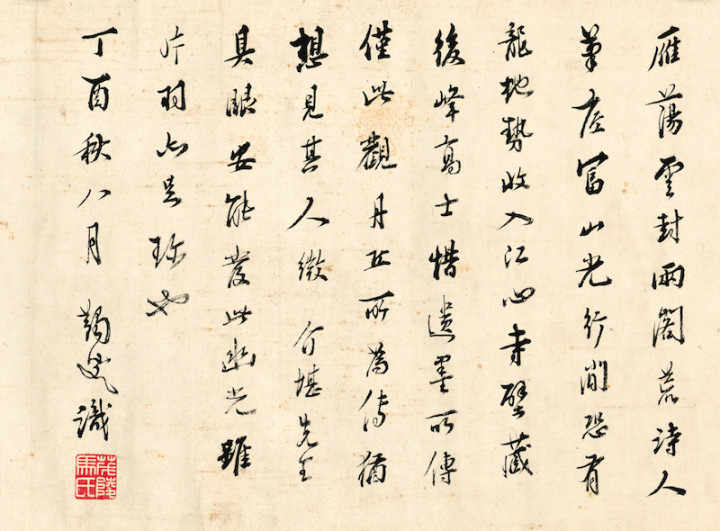 雁蕩雲封雨閣荒詩人
筆底富山光行間恐有
龍蛇勢收入江心寺壁藏
後峰高士惜遺墨所傳
僅此觀丹丘所為傳猶
想見其人微 介堪先生
具眼安能發此幽光雖
片羽亦足珍也
丁酉秋八月 蠲叟識
茂陵馬氏